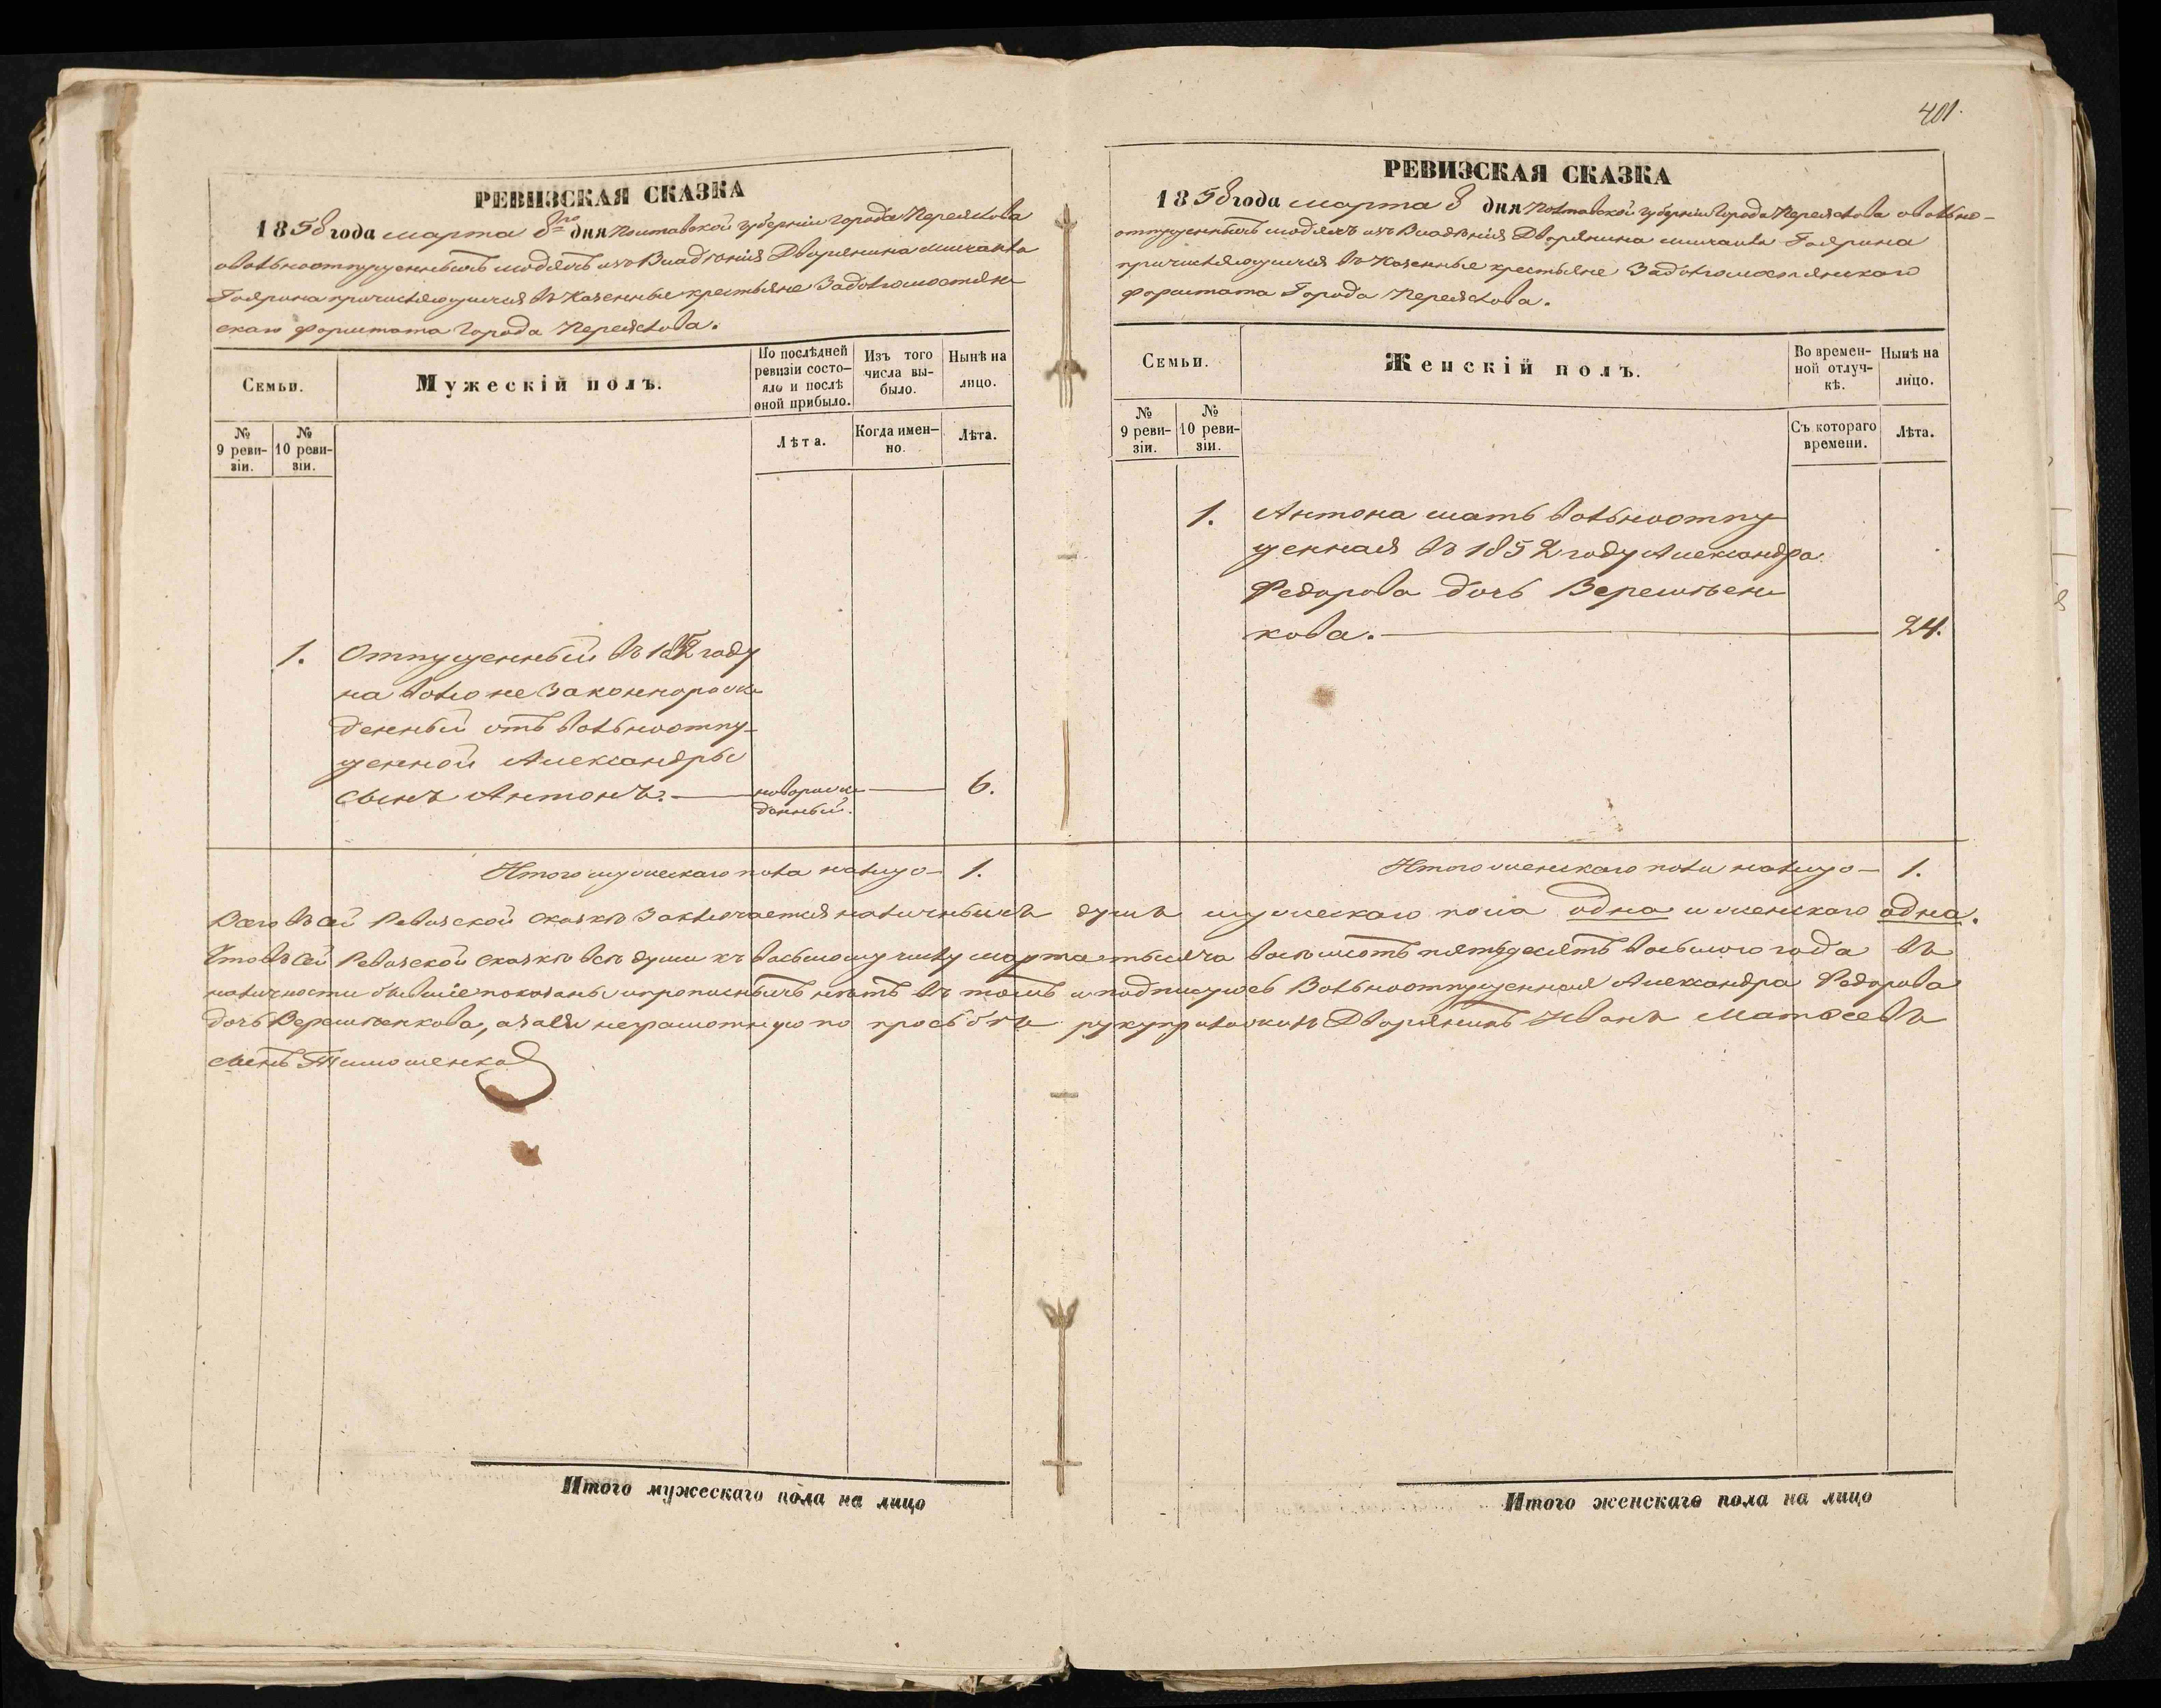 401.
РЕВИЗСКАЯ СКАЗКА
1858 года марта 8го дня Полтавской губерніи города Переяслова
овольноотпущенныхъ людяхъ изъ Владѣнія Дворянина Михаила
Гоярина причисляющихся въ Казенные крестьяне Задолгомостян
скаго форштата Города Переяслова.
Семьи.
Мужескій полъ.
По послѣдней ревизіи состо-
яло и послѣ
оной прибыло.
Изъ того
числа вы-
было.
Нынѣ на
лицо.
№
9 реви-
зіи.
№
10 реви-
зіи.
Лѣта.
Когда имен-
но.
Лѣта.
1. Отпущенный въ 1852 году
на волю не Законнорож
денный отъ вольноотпу-
щенной Александры
сынъ Антонъ. — новорож — 6.
денный.
Итого мужескаго пола налицо — 1.
РЕВИЗСКАЯ СКАЗКА
1858 года марта 8 дня Полтавской губерніи Города Переяслова о вольно-
отпущенныхъ людяхъ изъ Владѣнія Дворянина Михаила Гоярина
причисляющихся въ Казенные крестьяне Задолгомостянскаго
форштата Города Переяслова.
Семьи.
Женскій полъ.
Во времен-
ной отлуч-
кѣ.
Нынѣ на
лицо.
№
9 реви-
зіи.
№
10 реви-
зіи.
Съ котораго
времени.
Лѣта.
1. Антона мать вольноотпу
щенная въ 1852 году Александра
Федорова дочь Верешѣен
кова. — 24.
Итого женскаго пола налицо — 1.
Всего въ сей Ревизской сказкѣ Заключается наличныхъ душъ мужескаго пола одна и женскаго одна.
Что въ сей Ревизской сказкѣ всѣ души къ восьмому числу марта тысяча восемьсотъ пятьдесятъ восьмого года въ
наличности бывшіе показаны и прописныхъ нѣтъ въ томъ и подписуюсь Вольноотпущенная Александра Федорова
дочь Верешѣенкова, а за нея неграмотную по прозьбѣ руку приложилъ Дворянинъ Иванъ Матвеевъ
сынъ Тимошенко
Итого мужескаго пола на лицо
Итого женскаго пола на лицо